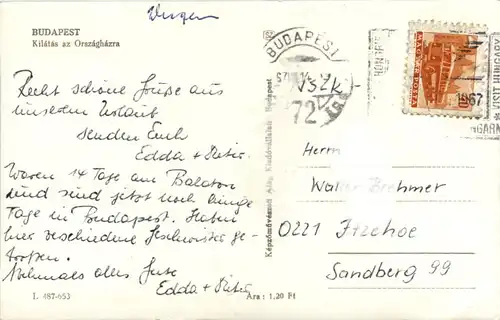 BUDAPEST
Kilátás az Országházra
Recht schöne Grüße aus
unserem Urlaub
senden Euch
Edda + Peter
Waren 14 Tage am Balaton
und sind jetzt noch einige
Tage in Budapest. Haben
hier verschiedene Geschwister ge-
troffen.
Nochmals alles Gute
Edda + Peter
I. 487-653
Ára: 1,20 Ft
Képzőművészeti Alap Kiadóvállalata Budapest
BUDAPEST
72
1967
VISIT HUNGARY
MAGYAR POSTA
Herrn
Walter Brehmer
0221 Itzehoe
Sandberg 99